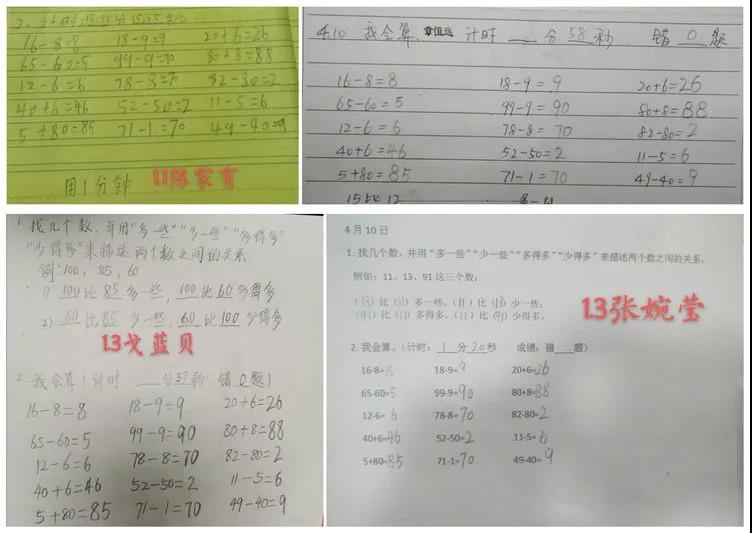 16-8=8 18-9=9 20+6=26
65-60=5 99-9=90 80+8=88
12-6=6 78-8=70 82-80=2
40+6=46 52-50=2 11-5=6
5+80=85 71-1=70 49-40=9
用1分钟
4.10 我会算. 章恒进 计时 ___ 分 58 秒 错 0 题
16-8=8 18-9=9 20+6=26
65-60=5 99-9=90 80+8=88
12-6=6 78-8=70 82-80=2
40+6=46 52-50=2 11-5=6
5+80=85 71-1=70 49-40=9
1.找几个数,并用“多一些”“少一些”“多得多”
“少得多”来描述两个数之间的关系
例:100,85,60
1) 100比85多一些,100比60多得多.
2) 60比85少一些,60比100少得多
1.3戈蓝贝
2.我会算(计时 ___分57秒 错0题)
16-8=8 18-9=9 20+6=26
65-60=5 99-9=90 80+8=88
12-6=6 78-8=70 82-80=2
40+6=46 52-50=2 11-5=6
5+80=85 71-1=70 49-40=9
4月10日
1. 找几个数,并用“多一些”“少一些”“多得多”“少得多”来描述两个数之间的关系。
例如:11、13、91这三个数:
(13)比(11)多一些,(11)比(13)少一些;
(91)比(11)多得多,(11)比(91)少得多。
1.3张婉莹
2. 我会算。(计时:1分20秒 成绩:错___题)
16-8=8 18-9=9 20+6=26
65-60=5 99-9=90 80+8=88
12-6=6 78-8=70 82-80=2
40+6=46 52-50=2 11-5=6
5+80=85 71-1=70 49-40=9